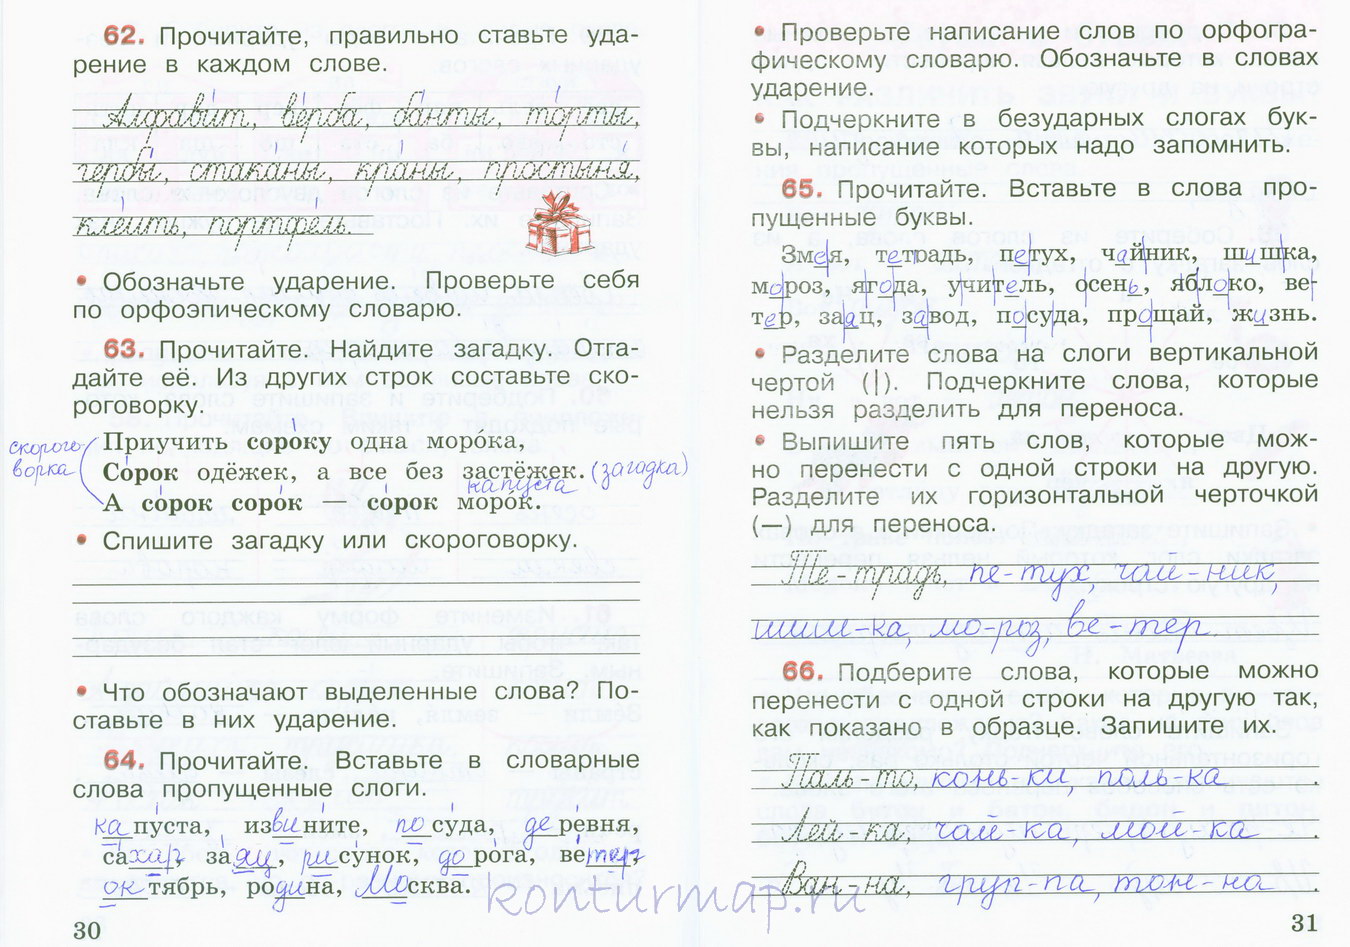 62. Прочитайте, правильно ставьте уда-
рение в каждом слове.
Алфавит, верба, банты, торты,
гербы, стаканы, краны, простыня,
клеить, портфель.
• Обозначьте ударение. Проверьте себя
по орфоэпическому словарю.
63. Прочитайте. Найдите загадку. Отга-
дайте её. Из других строк составьте ско-
роговорку.
скорого-
ворка
Приучить сороку одна морока,
Сорок одёжек, а все без застёжек. (загадка)
капуста
А сорок сорок — сорок морок.
• Спишите загадку или скороговорку.
• Что обозначают выделенные слова? По-
ставьте в них ударение.
64. Прочитайте. Вставьте в словарные
слова пропущенные слоги.
капуста, извините, посуда, деревня,
сахар, заяц, рисунок, дорога, ветер,
октябрь, родина, Москва.
30
• Проверьте написание слов по орфогра-
фическому словарю. Обозначьте в словах
ударение.
• Подчеркните в безударных слогах бук-
вы, написание которых надо запомнить.
65. Прочитайте. Вставьте в слова про-
пущенные буквы.
Змея, тетрадь, петух, чайник, шишка,
мороз, ягода, учитель, осень, яблоко, ве-
тер, заяц, завод, посуда, прощай, жизнь.
• Разделите слова на слоги вертикальной
чертой (|). Подчеркните слова, которые
нельзя разделить для переноса.
• Выпишите пять слов, которые мож-
но перенести с одной строки на другую.
Разделите их горизонтальной черточкой
(—) для переноса.
Те-традь, пе-тух, чай-ник,
шиш-ка, мо-роз, ве-тер.
66. Подберите слова, которые можно
перенести с одной строки на другую так,
как показано в образце. Запишите их.
Паль-то, конь-ки, поль-ка.
Лей-ка, чай-ка, мой-ка.
Ван-на, груп-па, тон-на.
31
konturmap.ru